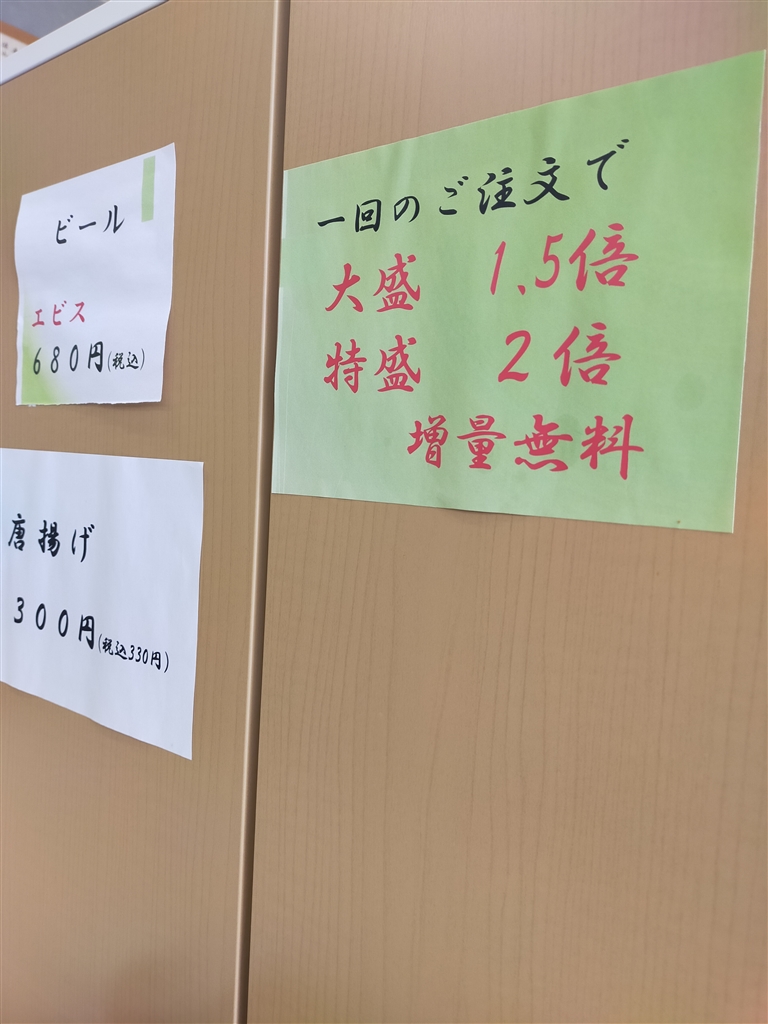 ビール
エビス
680円(税込)
唐揚げ
300円(税込330円)
一回のご注文で
大盛 1.5倍
特盛 2倍
増量無料